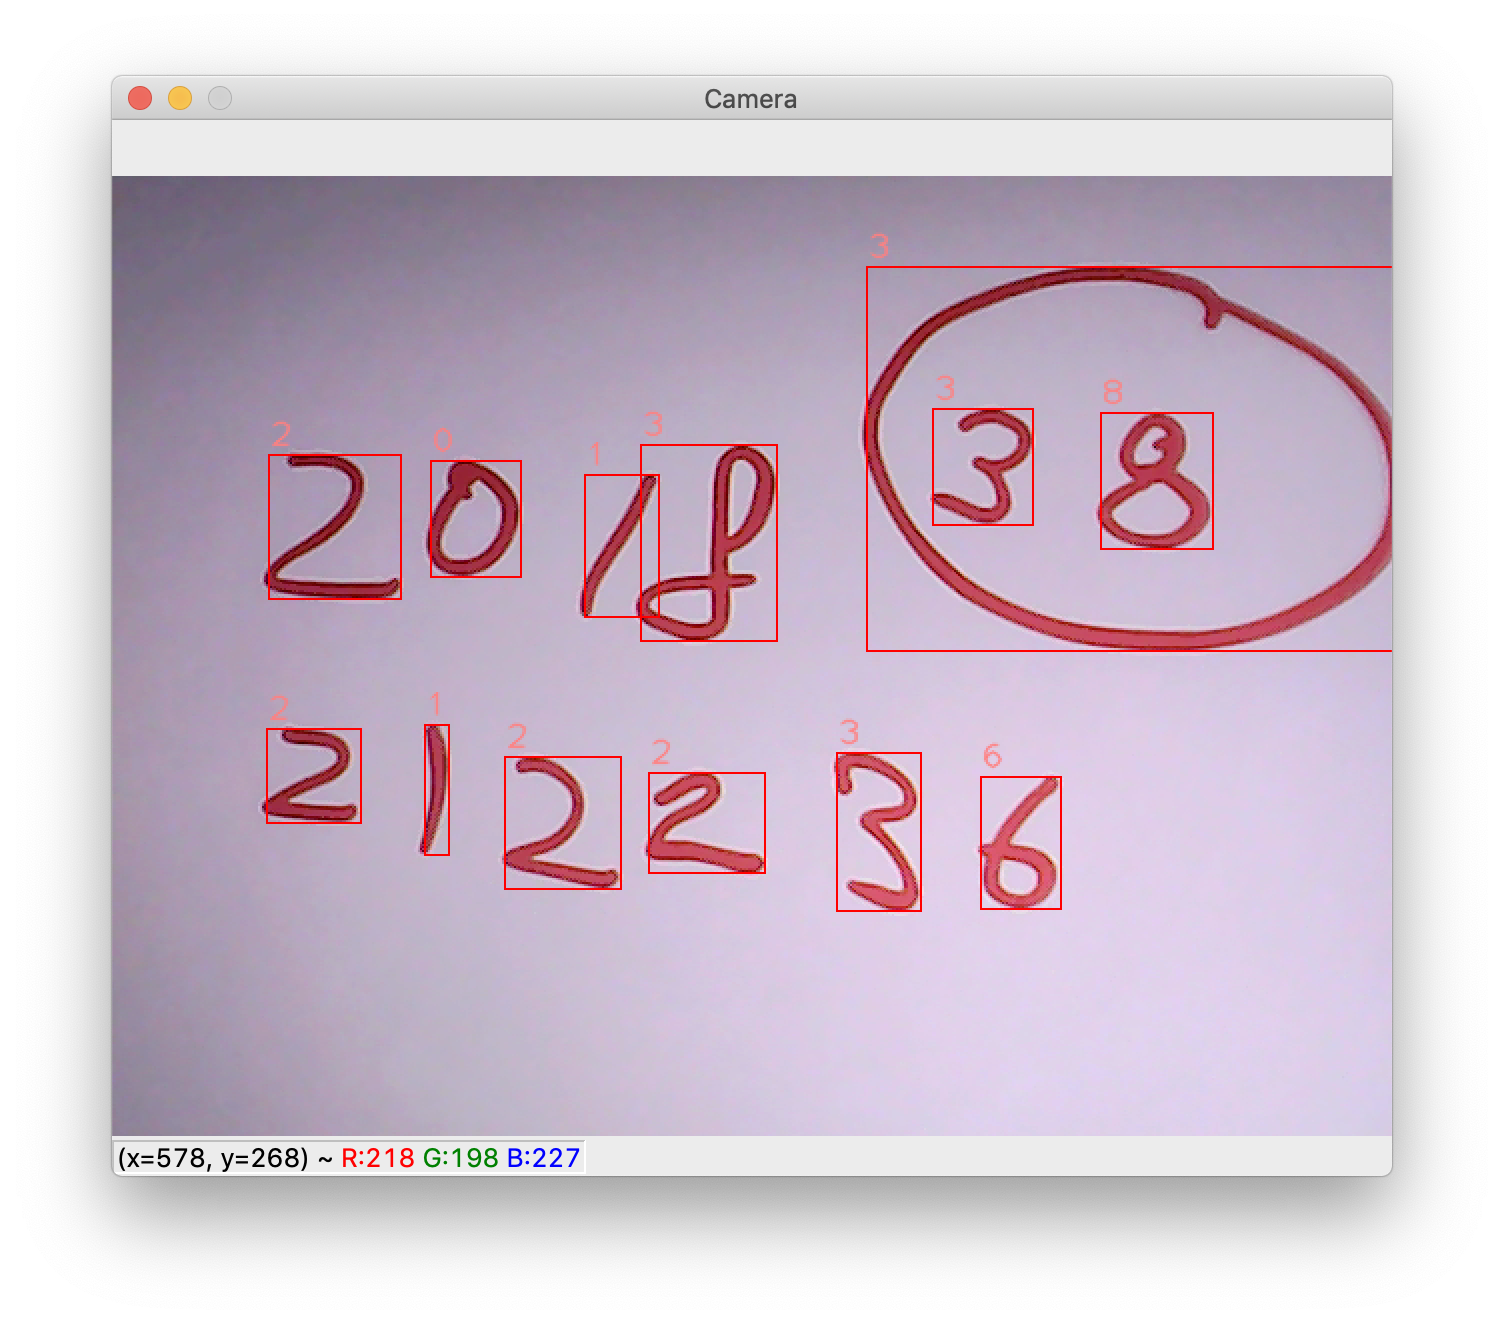 Camera
3
3 8
2 0 1 3
2 0 1 8 3 8
2 1 2 2 3 6
2 1 2 2 3 6
(x=578, y=268) ~ R:218 G:198 B:227